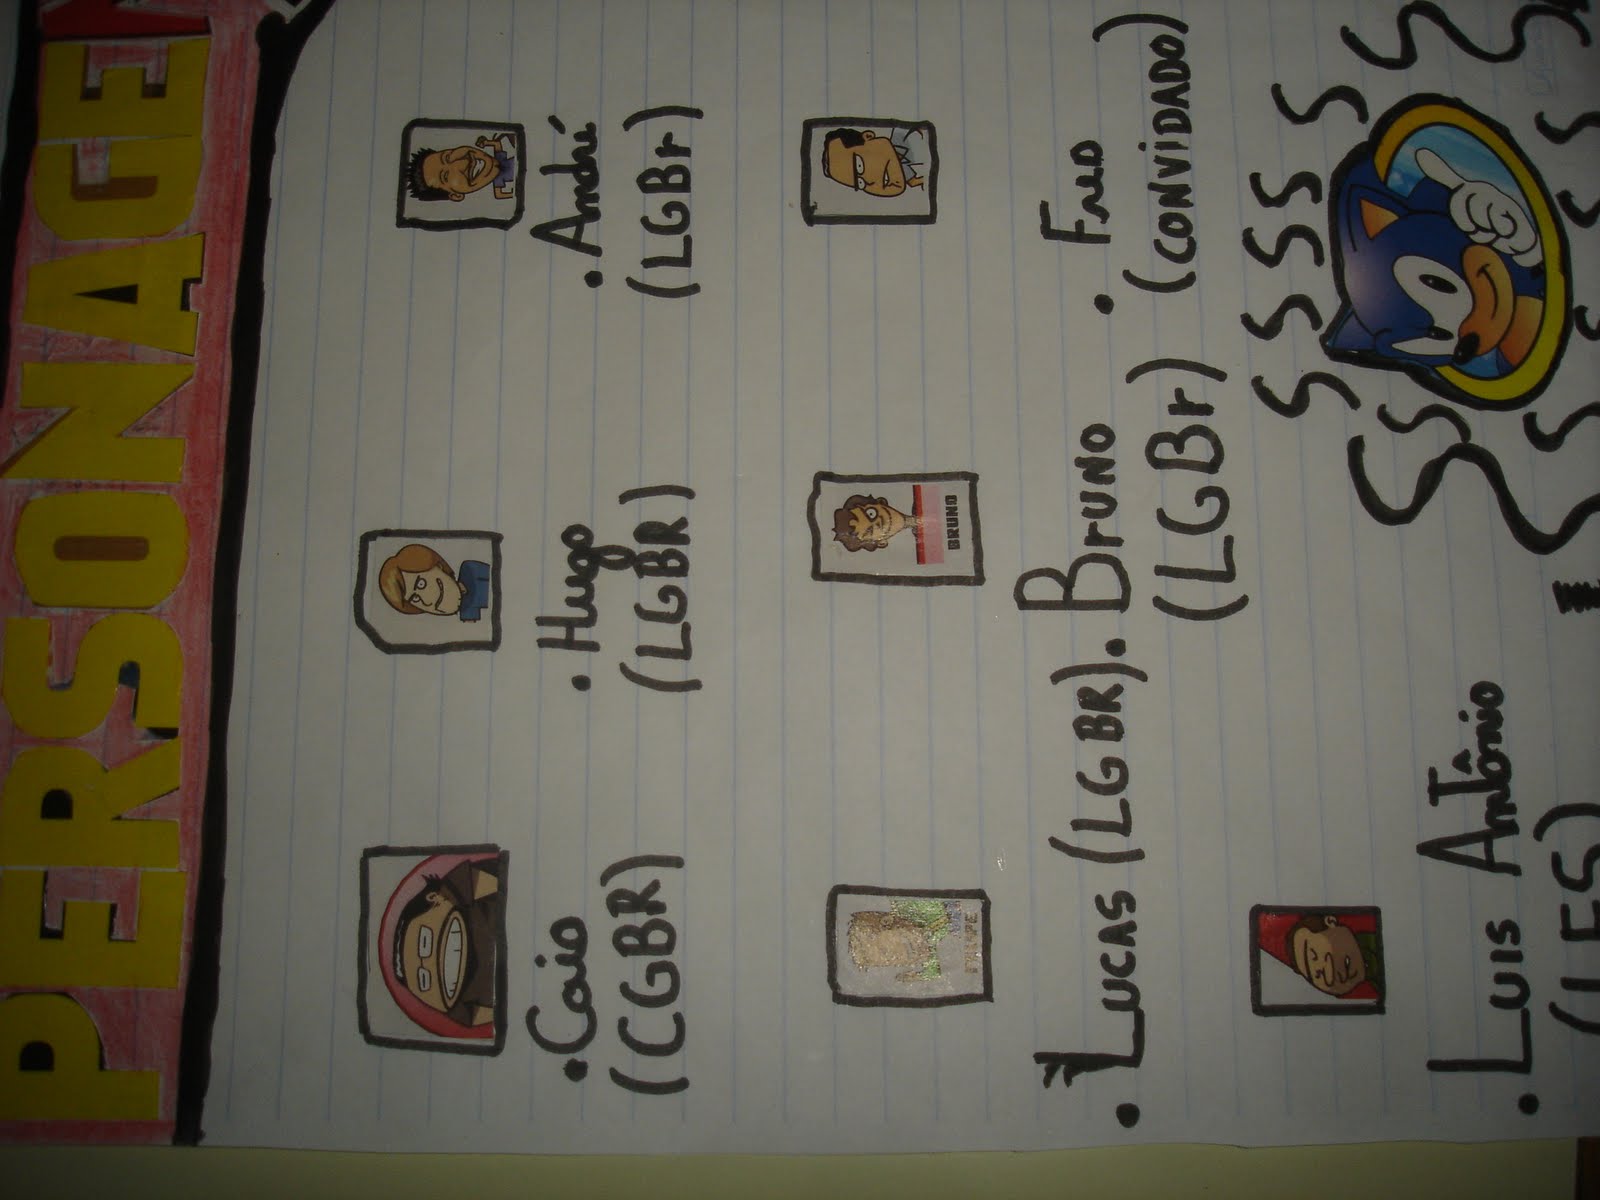 PERSONAGE
• Caio
(CGBR)
• Hugo
(LGBR)
• André
(LGBr)
BRUNO
• Lucas (LGBR)
• Bruno
(LGBr)
• Fred
(CONVIDADO)
S S S S S
• Luis Antônio